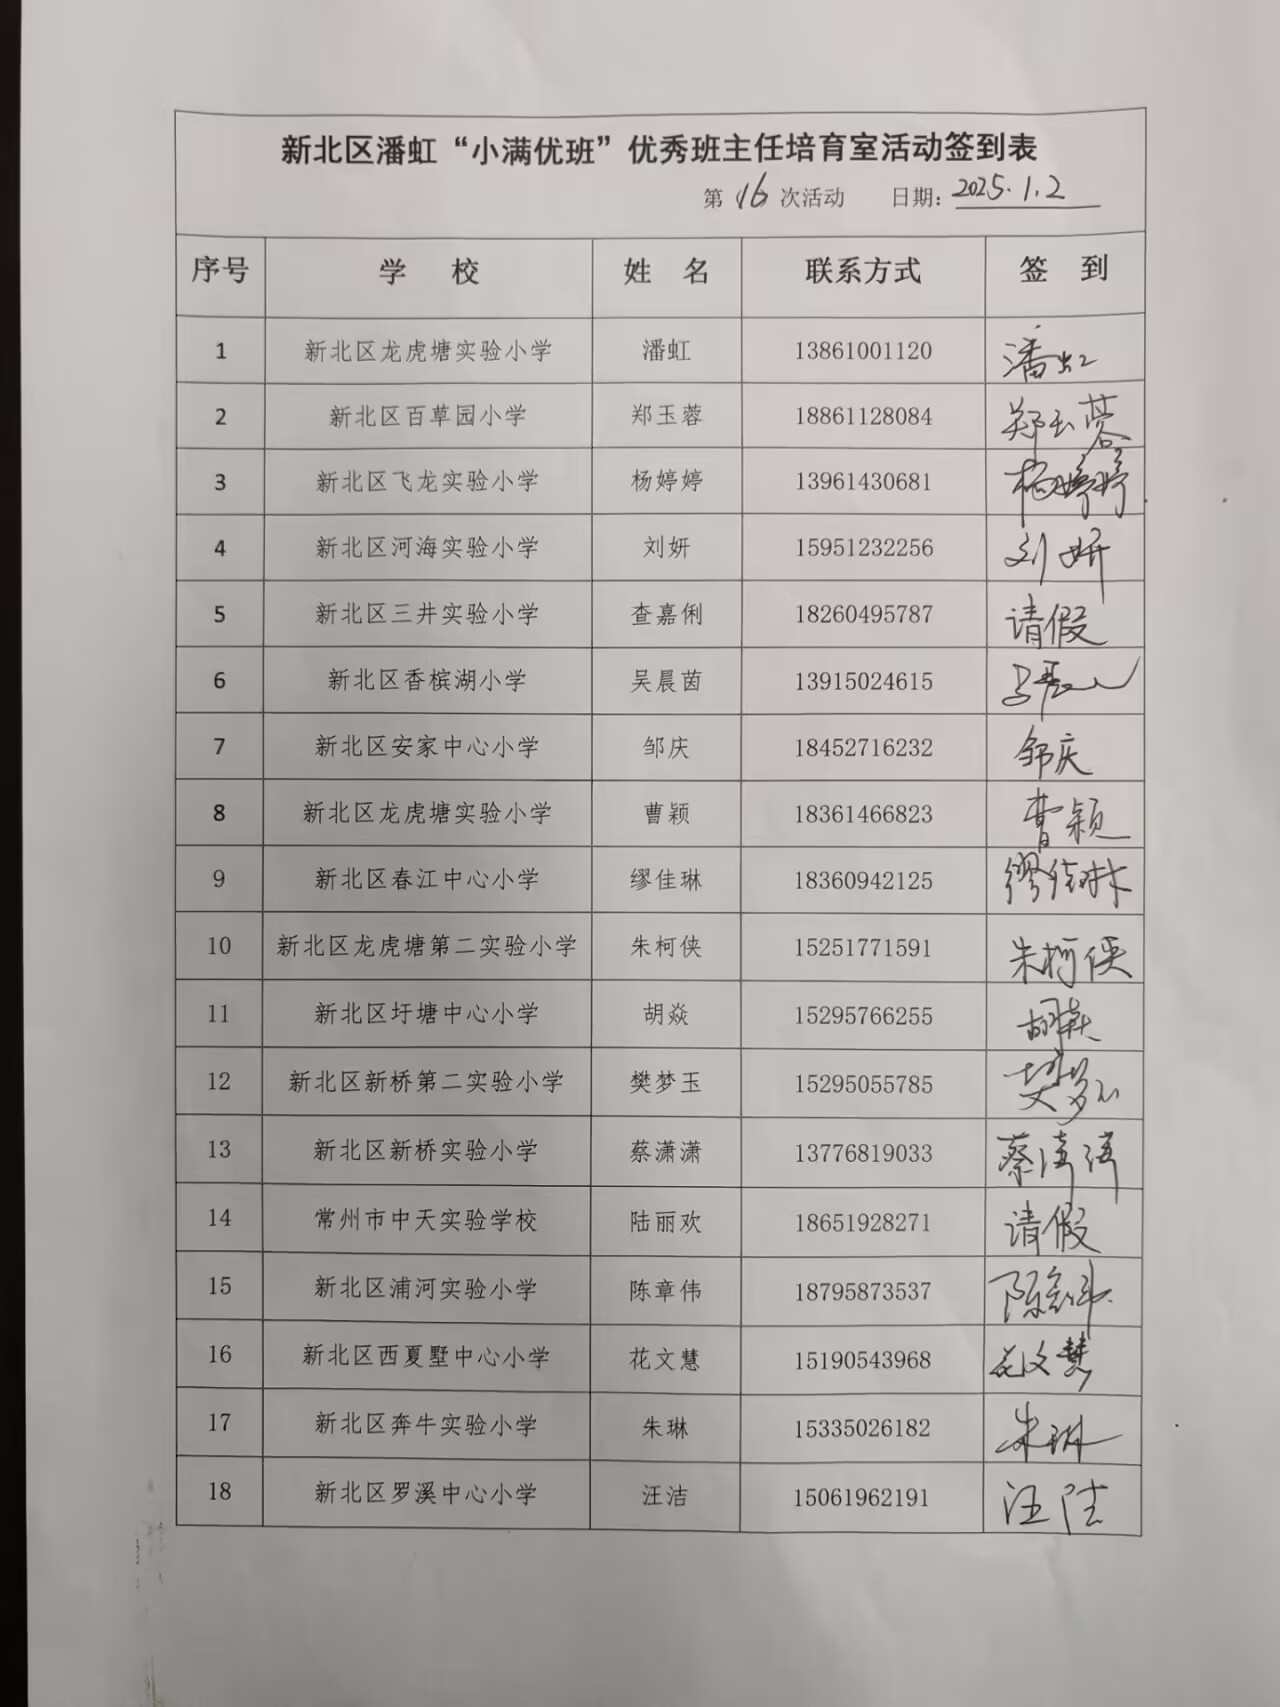 新北区潘虹“小满优班”优秀班主任培育室活动签到表
第 16 次活动 日期：2025.1.2
序号 学 校 姓 名 联系方式 签 到
1 新北区龙虎塘实验小学 潘虹 13861001120 潘虹
2 新北区百草园小学 郑玉蓉 18861128084 郑玉蓉
3 新北区飞龙实验小学 杨婷婷 13961430681 杨婷婷
4 新北区河海实验小学 刘妍 15951232256 刘妍
5 新北区三井实验小学 查嘉俐 18260495787 请假
6 新北区香槟湖小学 吴晨茵 13915024615
7 新北区安家中心小学 邹庆 18452716232 邹庆
8 新北区龙虎塘实验小学 曹颖 18361466823 曹颖
9 新北区春江中心小学 缪佳琳 18360942125 缪佳琳
10 新北区龙虎塘第二实验小学 朱柯侠 15251771591 朱柯侠
11 新北区圩塘中心小学 胡焱 15295766255 胡焱
12 新北区新桥第二实验小学 樊梦玉 15295055785 樊梦玉
13 新北区新桥实验小学 蔡潇潇 13776819033 蔡潇潇
14 常州市中天实验学校 陆丽欢 18651928271 请假
15 新北区浦河实验小学 陈章伟 18795873537 陈章伟
16 新北区西夏墅中心小学 花文慧 15190543968 花文慧
17 新北区奔牛实验小学 朱琳 15335026182 朱琳
18 新北区罗溪中心小学 汪洁 15061962191 汪洁